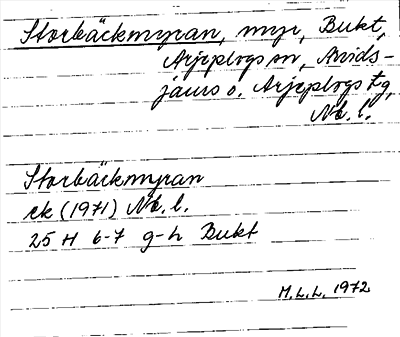 Storbäckmyran, myr, Bukt,
Arjeplogs sn, Arvids-
jaurs o. Arjeplogs tg,
Nb. l.
Storbäckmyran
ek (1971) Nb. l.
25 H 6-7 g-h Bukt
M.L.L. 1972